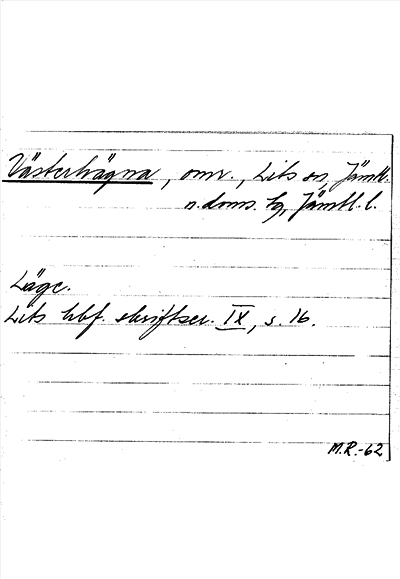 Västerhägna, omr., Lits sn, Jämtl.
n. doms. hg, Jämtl. l.
Läge.
Lits hbf. skriftser. IX, s. 16.
M.R.-62